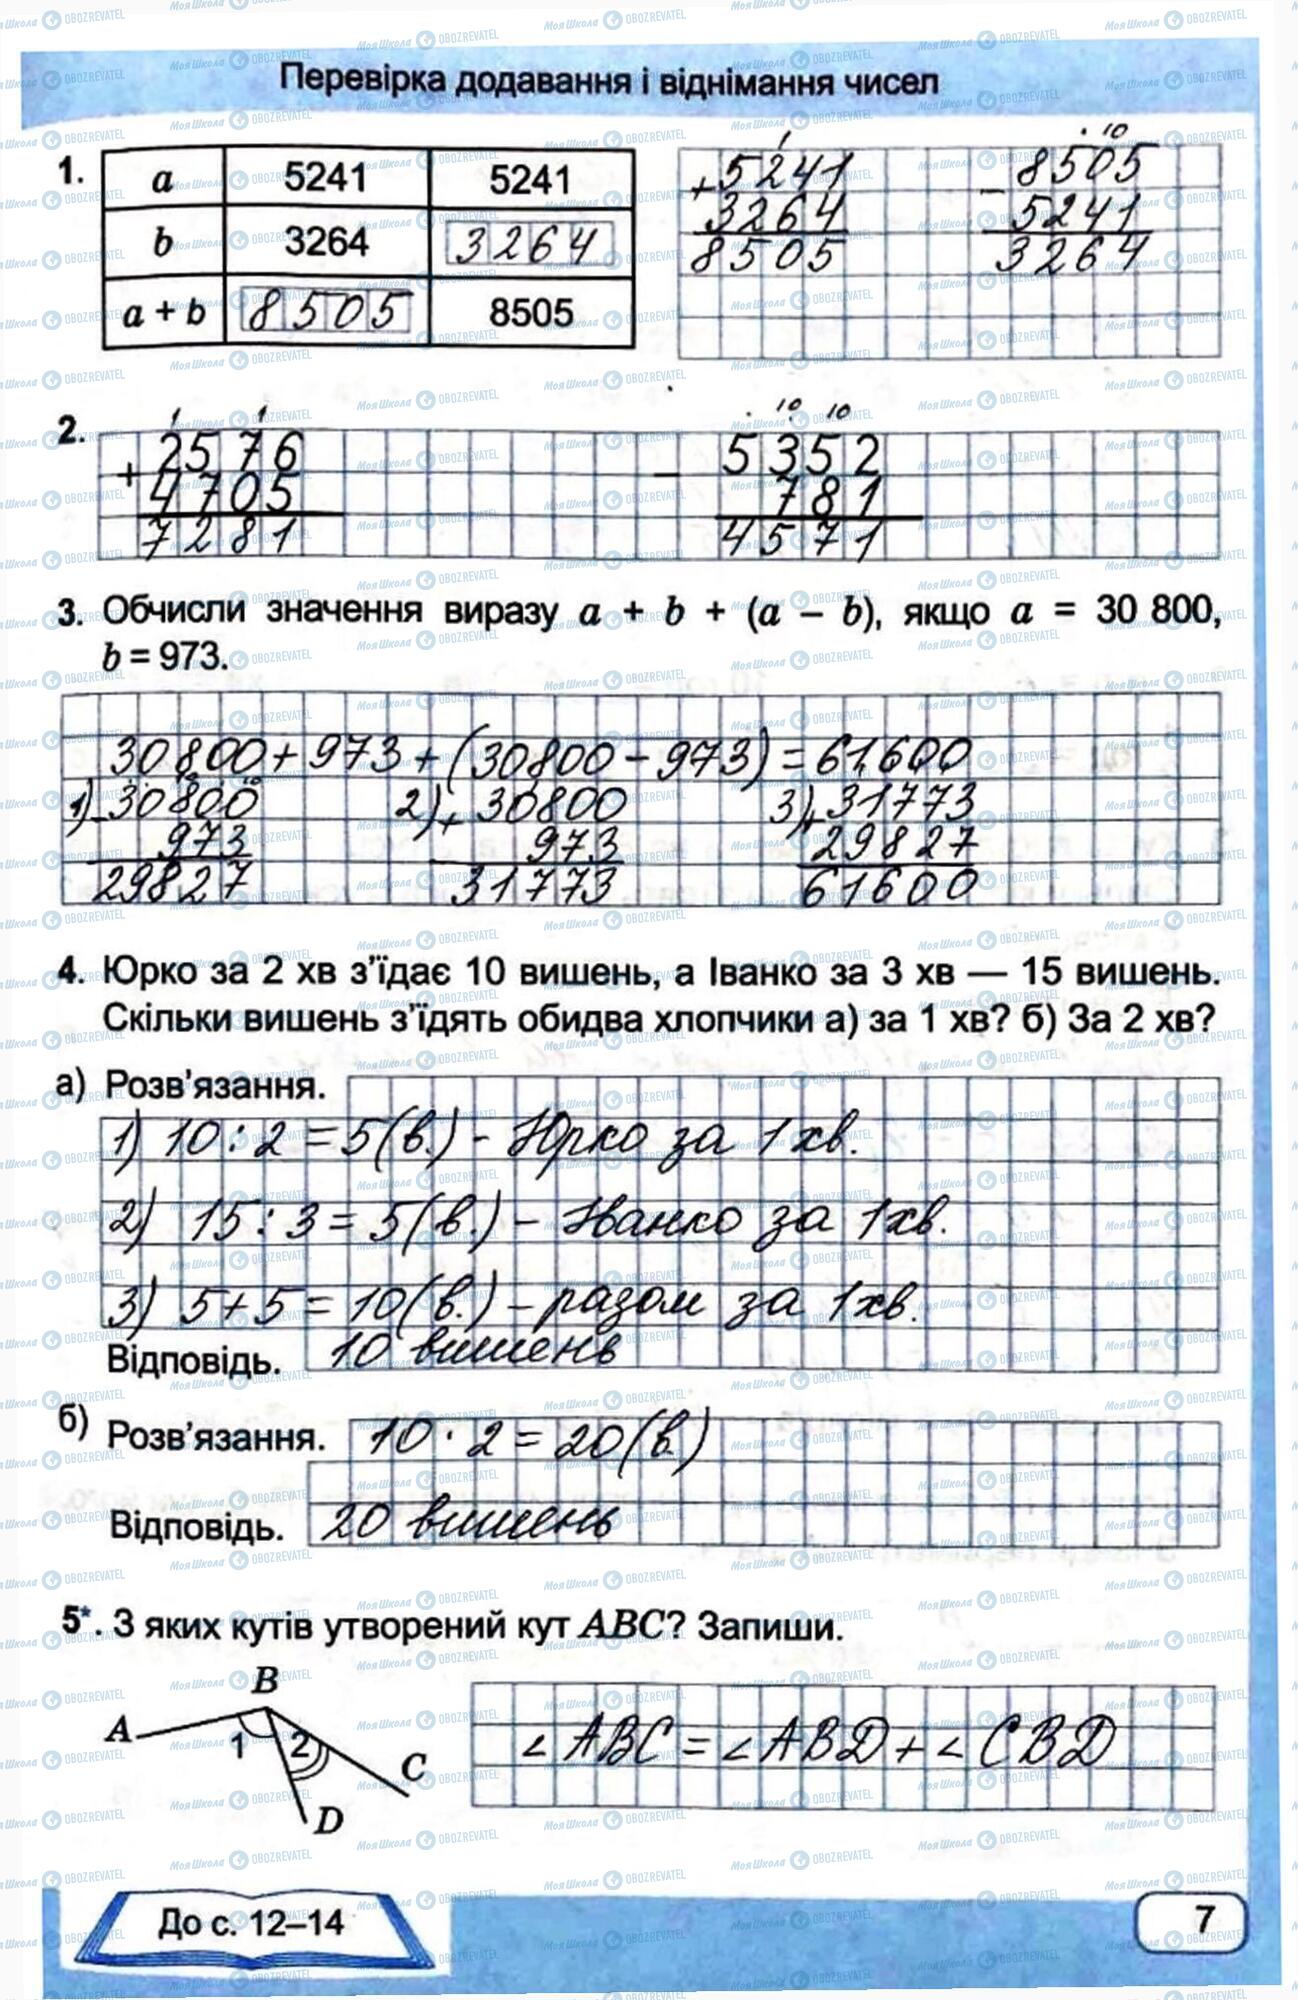 Перевірка додавання і віднімання чисел
1.
a 5241 5241
b 3264 3264
a + b 8505 8505
1
+5241
3264
8505
. 10
- 8505
5241
3264
2.
1 1
+ 2576
4705
7281
. 10 10
- 5352
781
4571
3. Обчисли значення виразу a + b + (a – b), якщо a = 30 800,
b = 973.
30800 + 973 + (30800 - 973) = 61600
1) - 30800
973
29827
2) + 30800
973
31773
3) + 31773
29827
61600
4. Юрко за 2 хв з’їдає 10 вишень, а Іванко за 3 хв — 15 вишень.
Скільки вишень з’їдять обидва хлопчики а) за 1 хв? б) За 2 хв?
а) Розв’язання.
1) 10 : 2 = 5 (в.) - Юрко за 1 хв.
2) 15 : 3 = 5 (в.) - Іванко за 1 хв.
3) 5 + 5 = 10 (в.) - разом за 1 хв.
Відповідь. 10 вишень
б) Розв’язання. 10 · 2 = 20 (в)
Відповідь. 20 вишень
5*. З яких кутів утворений кут ABC? Запиши.
B
A 1 2 C
D
∠ ABC = ∠ ABD + ∠ CBD
До с. 12–14
7
МояШкола OBOZREVATEL